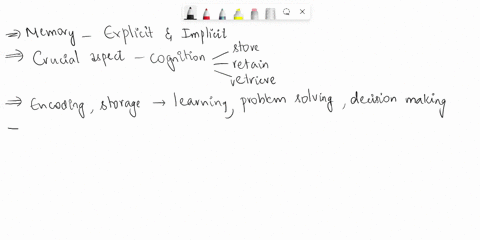 ⇒ Memory - Explicit & Implicit
store
⇒ Crucial aspect - cognition
retain
retrieve
⇒ Encoding, storage → learning, problem solving, decision making
-